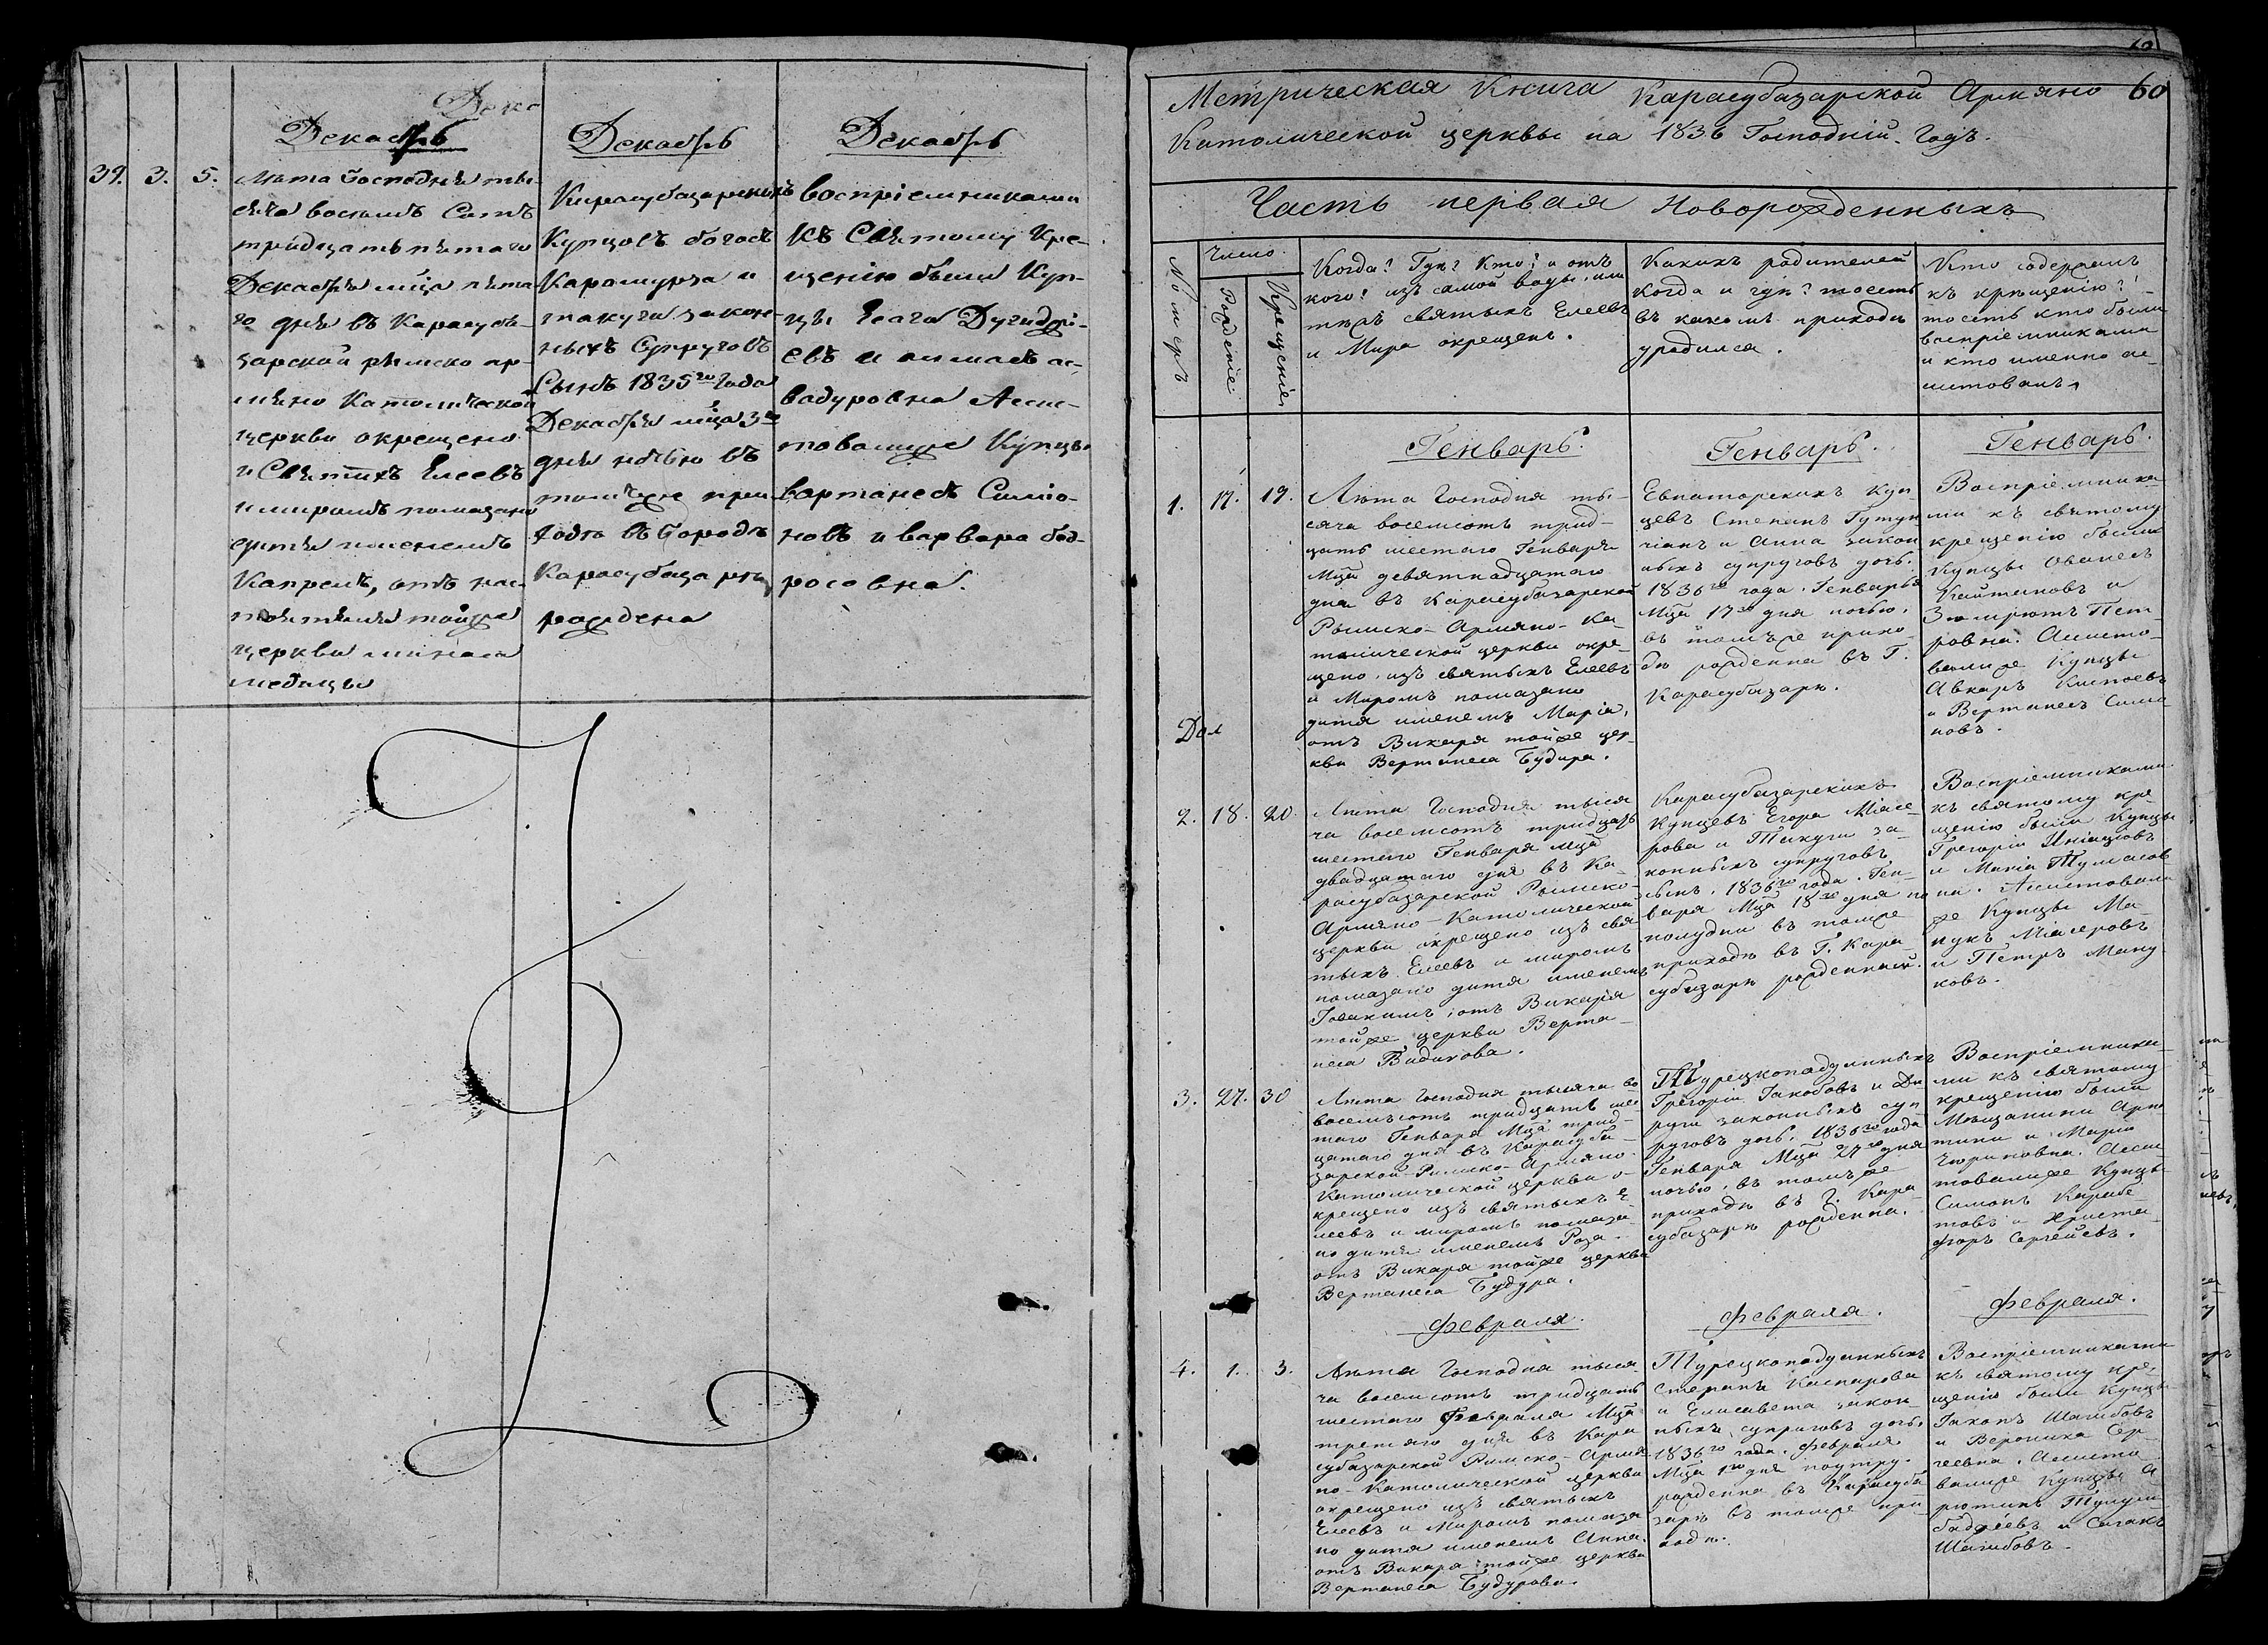 Декабрь
Декабрь
Декабрь
39. 3. 5.
Лѣта Господня ты-
сяча восемъ Сотъ
тридцать пятаго
Декабря мца пята-
го дня въ Карасуба-
зарской римско ар-
мяно Католической
церкви окрещено
и Святыхъ Елеевъ
и миромъ помазано
дитя именемъ
Капрелъ, отъ нас-
тоятеля тойже
церкви минаса
медицы
Карасубазарскихъ
Купцовъ богосъ
Карамурза и
такуги закон-
ныхъ Супруговъ
Сынъ 1835го Года
Декабря мца 3го
дня ночью въ
томъже при-
ходѣ въ Городѣ
Карасубазарѣ
рождена
воспріемниками
Къ Святому Кре-
щенію были Куп-
цы
евъ и
вадуровна Асис-
товалиже Купцы
вартанесъ Симіо-
новъ и варвара бод-
росовна.
60
Метрическая Книга Карасубазарской Армяно
Католической церквы на 1836 Господній Годъ.
Часть первая Новорожденныхъ
Номеръ
Число
Рожденіе
Крещенія
Когда? Гдѣ? Кто? и отъ
кого? изъ самой воды, или
тѣхъ святыхъ Елеевъ
и Мира окрещенъ.
Какихъ родителей
когда и гдѣ? тоесть
въ какомъ приходѣ
уродился.
Кто содержалъ
къ крѣщенію?
тоесть кто были
воспріемниками
и кто именно ас-
истовалъ
Генварь.
Генварь.
Генварь.
1. 17. 19.
Лѣта Господня ты-
сяча восемсотъ трид-
цать шестаго Генваря
Мца девятнадцатаго
дня въ Карасубазарской
Римско-Армяно-Ка-
толической церкви окре-
щено, изъ святыхъ Елеевъ
и Миромъ помазано
дитя именемъ Марія,
отъ Викаря тойже цер-
кви Вертанеса Будура.
Евпаторскихъ Куп-
цевъ Степанъ Гутун
чіанъ и Анна закон
ныхъ супруговъ дочь.
1836го года. Генварья
Мца 17го дня ночью,
въ томъже прихо-
дѣ рожденна въ Г.
Карасубазарѣ.
Воспріемника-
ми къ святому
крещенію были
Купцы Ованесъ
Кайтановъ и
Зюмрютъ Пет-
ровна. Асисто-
валиже Купцы
Авкаръ Киспоевъ
и Вертанесъ Симо-
новъ.
Дол
2. 18. 20.
Лѣта Господня тыся
ча восемсотъ тридцать
шестаго Генваря Мца
двадцатаго дня въ Ка-
расубазарской Римско-
Армяно-Католической
церкви окрещено изъ свя
тыхъ Елеевъ и миромъ
помазано дитя именемъ
Іоакимъ, отъ Викарія
тойже церкви Верта-
неса Бидихова.
Карасубазарскихъ
Купцевъ Егора Міасе-
рова и Такуги за-
конныхъ супруговъ
сынъ. 1836го года. Ген-
варя Мца 18го дня по
полудни въ томже
приходѣ въ Г. Кара-
субазарѣ рожденный.
Воспріемниками
къ святому кре-
щенію были Купцы
Грегорій Иніацовъ
и Марія Тумасов
на. Асистовали
же Купцы Ма-
нукъ Міасеровъ
и Петръ Ману-
ковъ.
3. 27. 30
Лѣта Господня тысяча во
восемъсотъ тридцать шес
таго Генваря Мца трид-
цатаго дня въ Карасуба-
зарской-Римско-Армяно-
Католической церкви о-
крещено изъ святыхъ Е
леевъ и миромъ помаза-
но дитя именемъ Роза.
отъ Викаря тойже церкви
Вертанеса Будура.
Турецкоподданныхъ
Грегорій Іакобовъ и Ди
руги законныхъ суп
руговъ дочь. 1836го года
Генваря Мца 27го дня
ночью, въ томъже
приходѣ въ Г. Кара-
субазарѣ рожденна.
Воспріемника-
ми къ святому
крещенію были
Мѣщанини Арю
тинъ и Марія
Чюриковна. Асси
товалиже Купцы
Симонъ Карабе-
товъ и Христа-
форъ Сергѣевъ.
Февраля.
Февраля.
Февраля.
4. 1. 3.
Лѣта Господня тыся
ча восемсотъ тридцать
шестаго Февраля Мца
третяго дня въ Кара
субазарской Римско-Армя
но-Католической церкви
окрещено изъ святыхъ
Елеевъ и Миромъ помаза
но дитя именемъ Анна.
отъ Викаря тойже церкви
Вертанеса Будурова.
Турецкоподданныхъ
Стерана Каспарова
и Елисавета закон
ныхъ супруговъ дочь.
1836го года. Февраля
Мца 1го дня поутру.
рожденна въ Карасуба
зарѣ въ томже при
ходѣ.
Воспріемниками
къ святому кре-
щенію были Купцы
Іаковъ Шагибовъ
и Вероника Сер-
геевна. Асисто
валиже Купцы А
рютинъ
и Сагакъ
Шагибовъ.